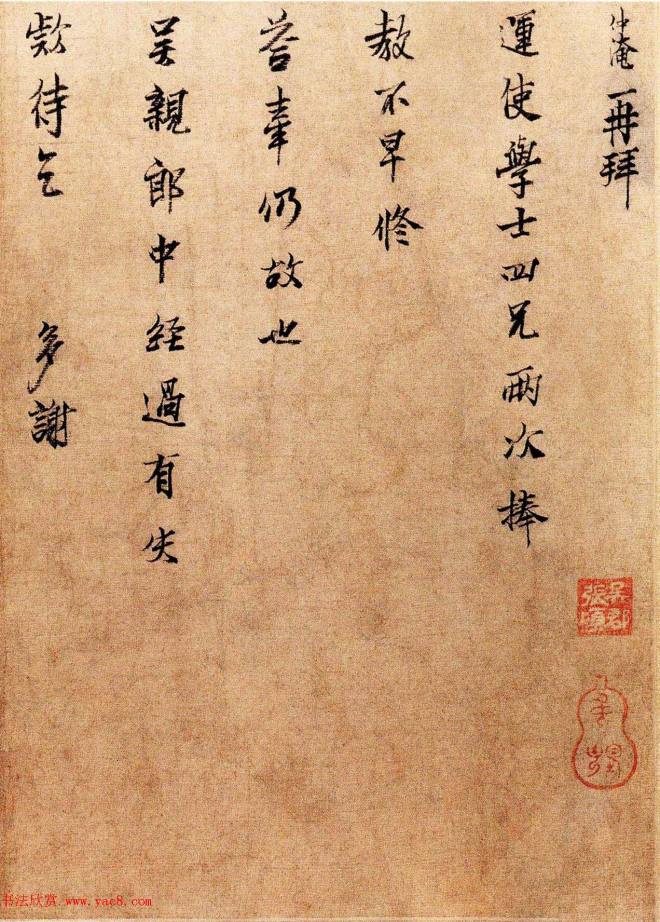 仲淹再拜
運使學士四兄兩次捧
教不早修
荅牽仍故也
吴親郎中經過有失
款待乞
多謝
吳郡張
书法欣赏 www.yac8.com